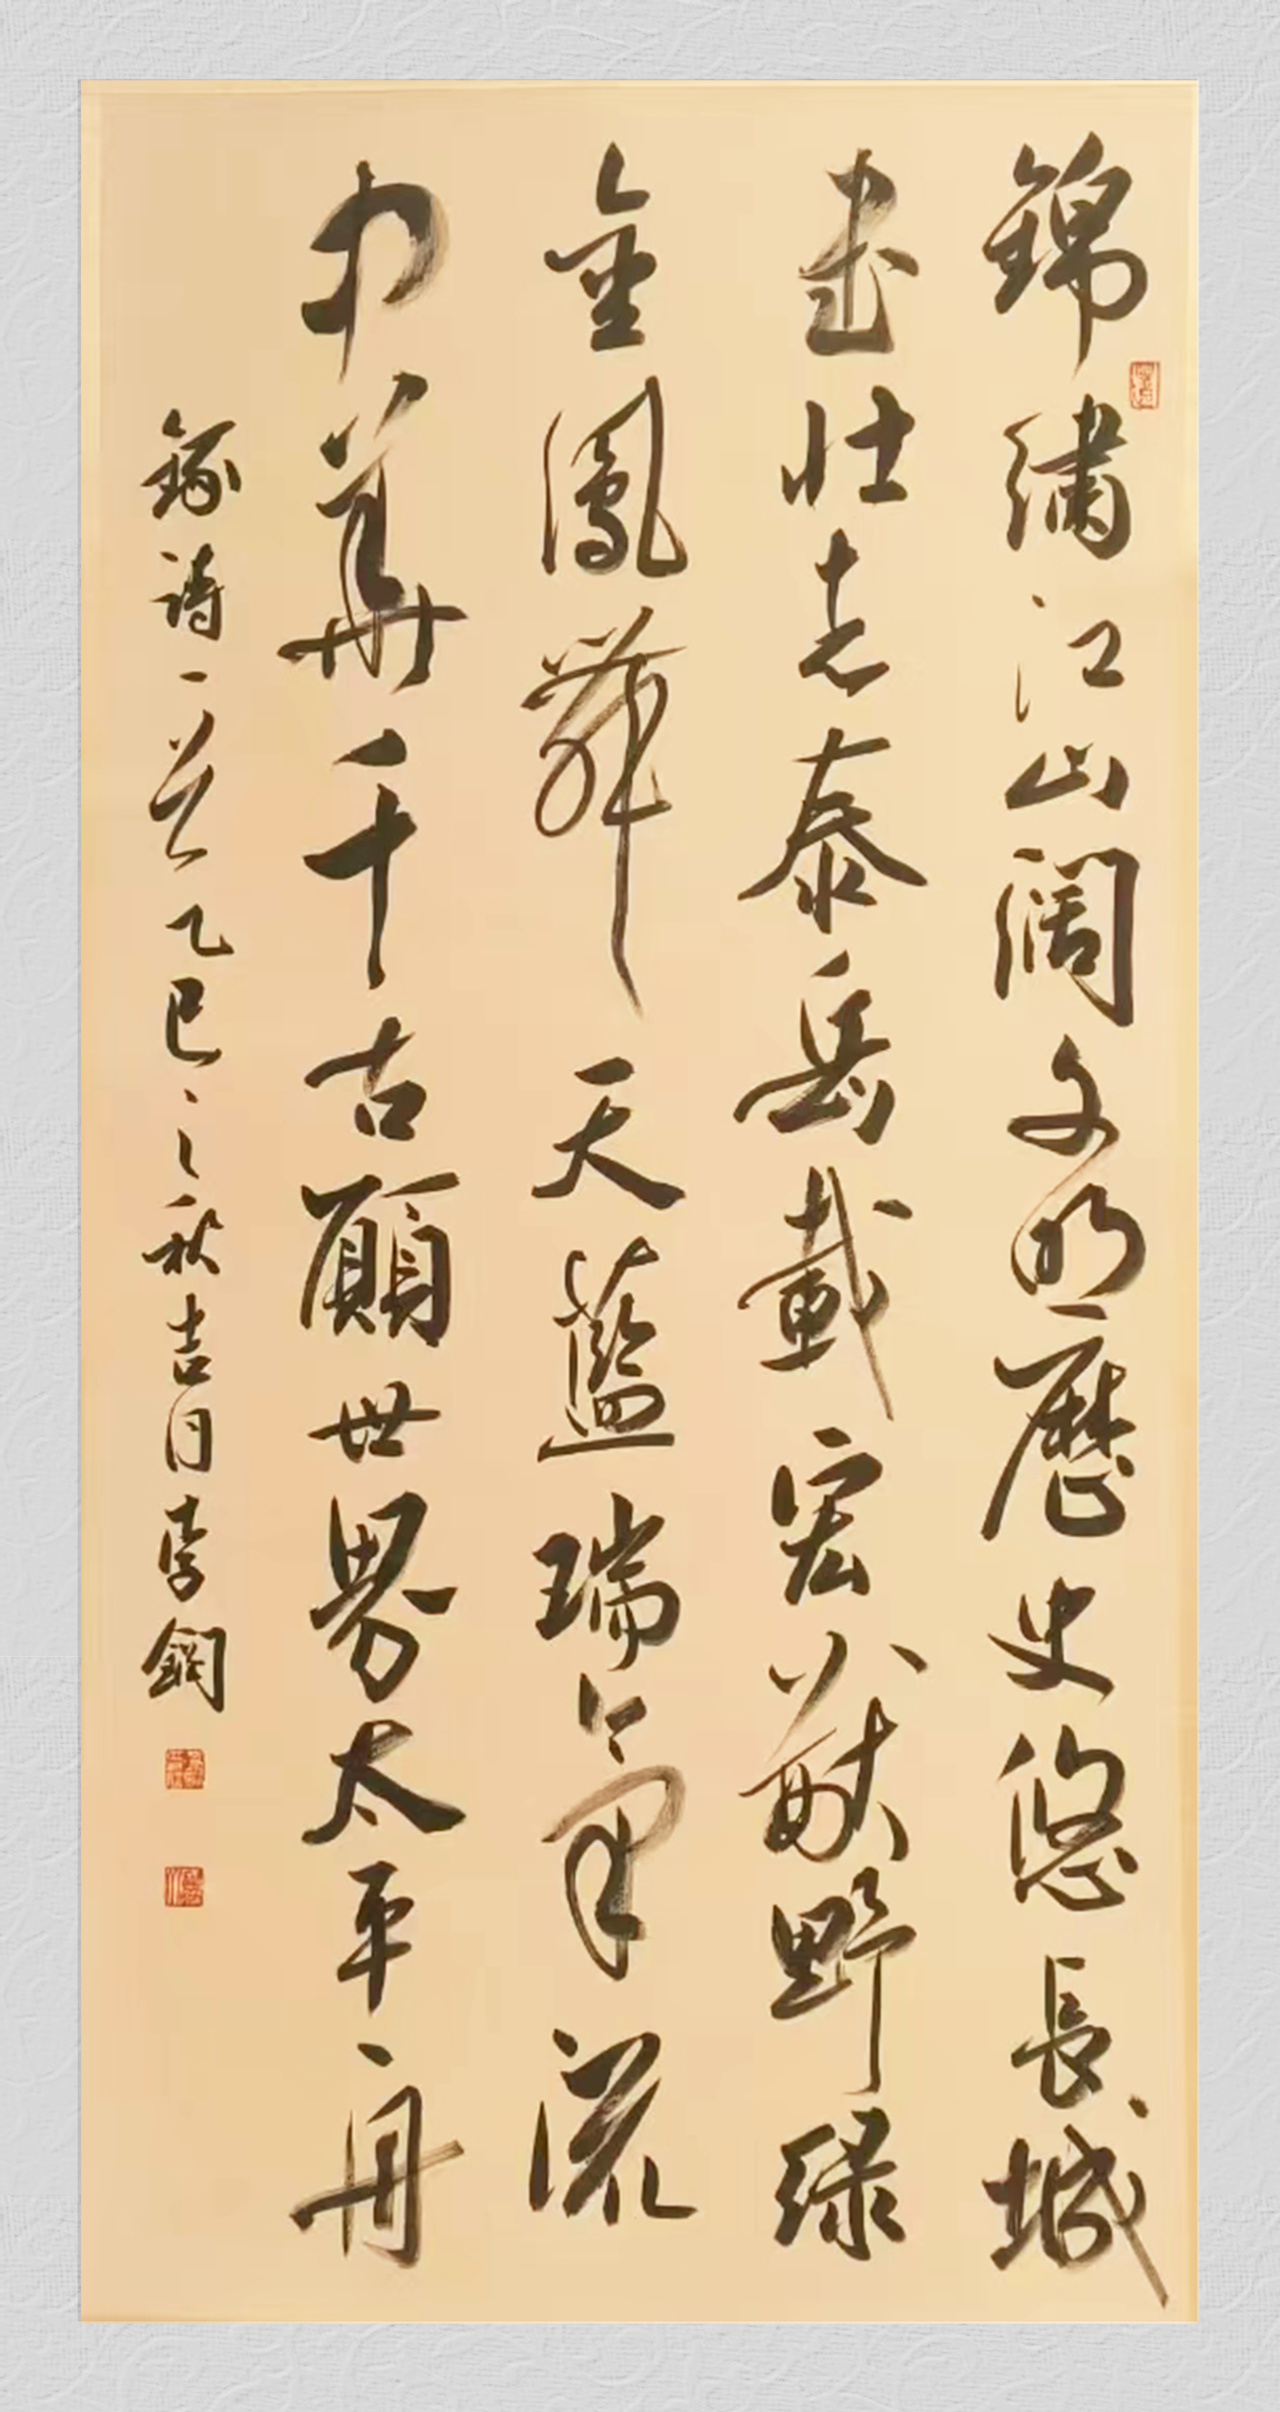 錦繡江山闊文明歷史悠長城
書壯志泰岳載宏猷野綠
金鳳舞天藍瑞氣流
中華千古願世界太平舟
錄詩一首乙巳之秋吉月李鋼